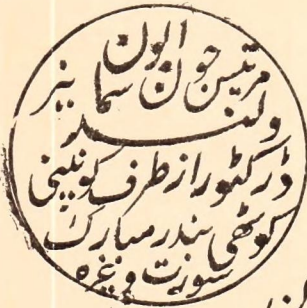 الون
مرتیس جون سماینر
ولندیز
درکتور از طرف کونپنی
کوتهی بندر مبارک
سورت وغیره